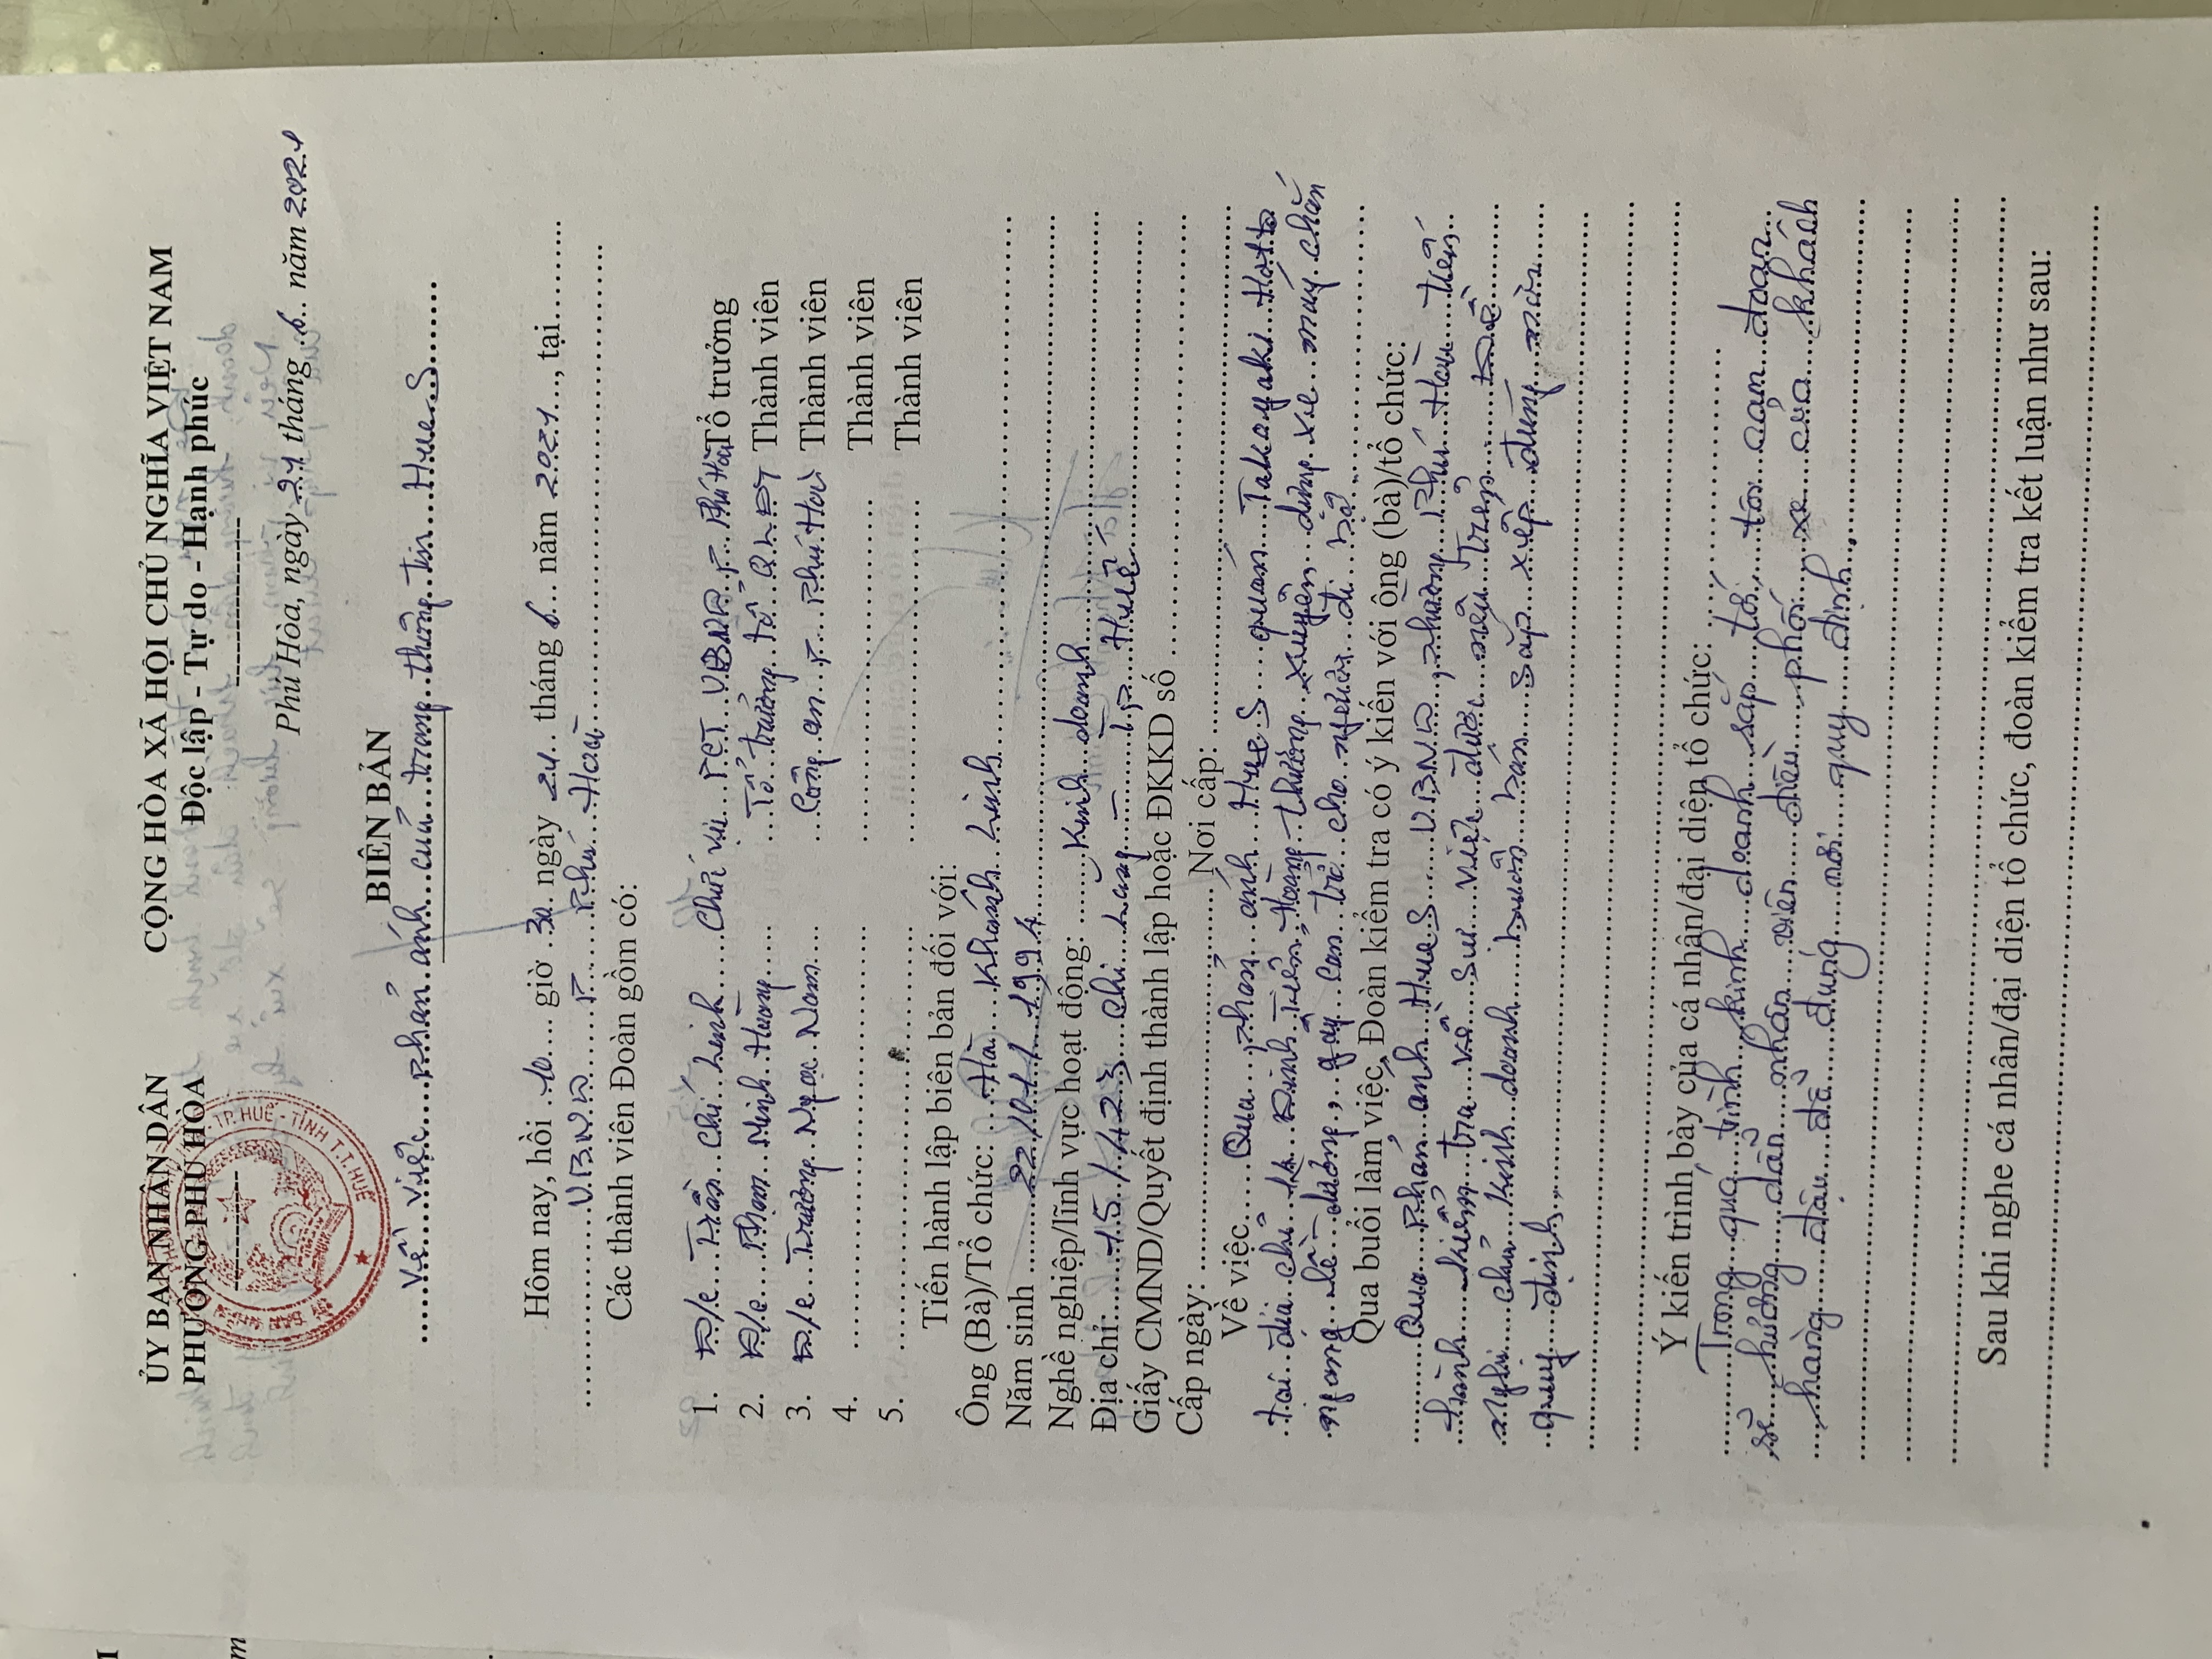 ỦY BAN NHÂN DÂN
PHƯỜNG PHÚ HÒA
CỘNG HÒA XÃ HỘI CHỦ NGHĨA VIỆT NAM
Độc lập - Tự do - Hạnh phúc
Phú Hòa, ngày 21 tháng 6 năm 2021
BIÊN BẢN
Về việc phản ánh của trang thông tin Hue S
Hôm nay, hồi 10 giờ 30 ngày 21 tháng 6 năm 2021, tại
UBND P Phú Hoà
Các thành viên Đoàn gồm có:
1. Đ/c Trần Chí Linh Chức vụ PCT UBND P Phú Hoà Tổ trưởng
2. Đ/c Phạm Minh Hường Tổ trưởng tổ QLĐT Thành viên
3. Đ/c Trương Ngọc Nam Công an P Phú Hoà Thành viên
4. Thành viên
5. Thành viên
Tiến hành lập biên bản đối với:
Ông (Bà)/Tổ chức: Hà Khánh Linh
Năm sinh 22/01/1994
Nghề nghiệp/lĩnh vực hoạt động: Kinh doanh
Địa chỉ: 15/423 Chi Lăng - TP Huế
Giấy CMND/Quyết định thành lập hoặc ĐKKD số
Cấp ngày: Nơi cấp:
Về việc Qua phản ánh Hue S quán Takoyaki
tại địa chỉ Đinh Tiên Hoàng thường xuyên dừng xe máy chắn
ngang lề đường, gây cản trở cho người đi bộ
Qua buổi làm việc, Đoàn kiểm tra có ý kiến với ông (bà)/tổ chức:
Qua phản ánh Hue S UBND phường Phú Hoà tiến
hành kiểm tra về sự việc được nêu trên. Đề
nghị chủ kinh doanh buôn bán sắp xếp đúng
quy định.
Ý kiến trình bày của cá nhân/đại diện tổ chức:
Trong quá trình kinh doanh sắp tới, tôi cam đoan
sẽ hướng dẫn nhân viên điều phối xe của khách
hàng đậu đỗ đúng nơi quy định.
Sau khi nghe cá nhân/đại diện tổ chức, đoàn kiểm tra kết luận như sau: